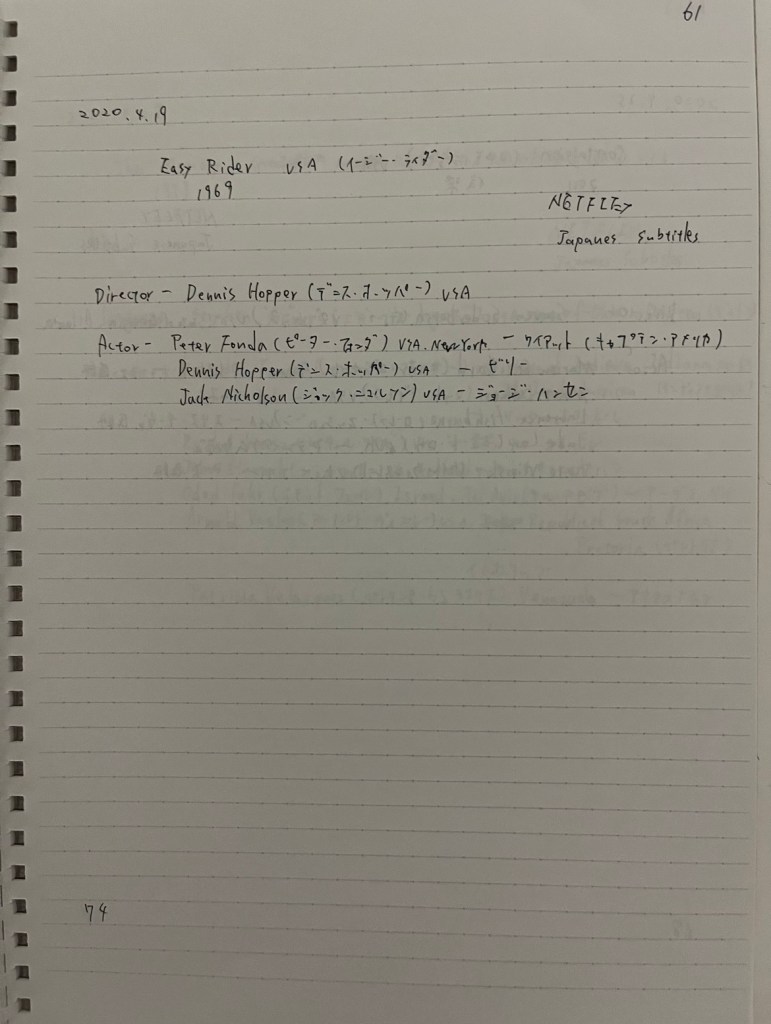 61
2020.4.19
Easy Rider USA (イージー・ライダー)
1969
NETFLIX
Japanes subtitles
Director - Dennis Hopper (デニス・ホッパー) USA
Actor - Peter Fonda (ピーター・フォンダ) USA. New York - ワイアット (キャプテン・アメリカ)
Dennis Hopper (デニス・ホッパー) USA - ビリー
Jack Nicholson (ジャック・ニコルソン) USA - ジョージ・ハンセン
74